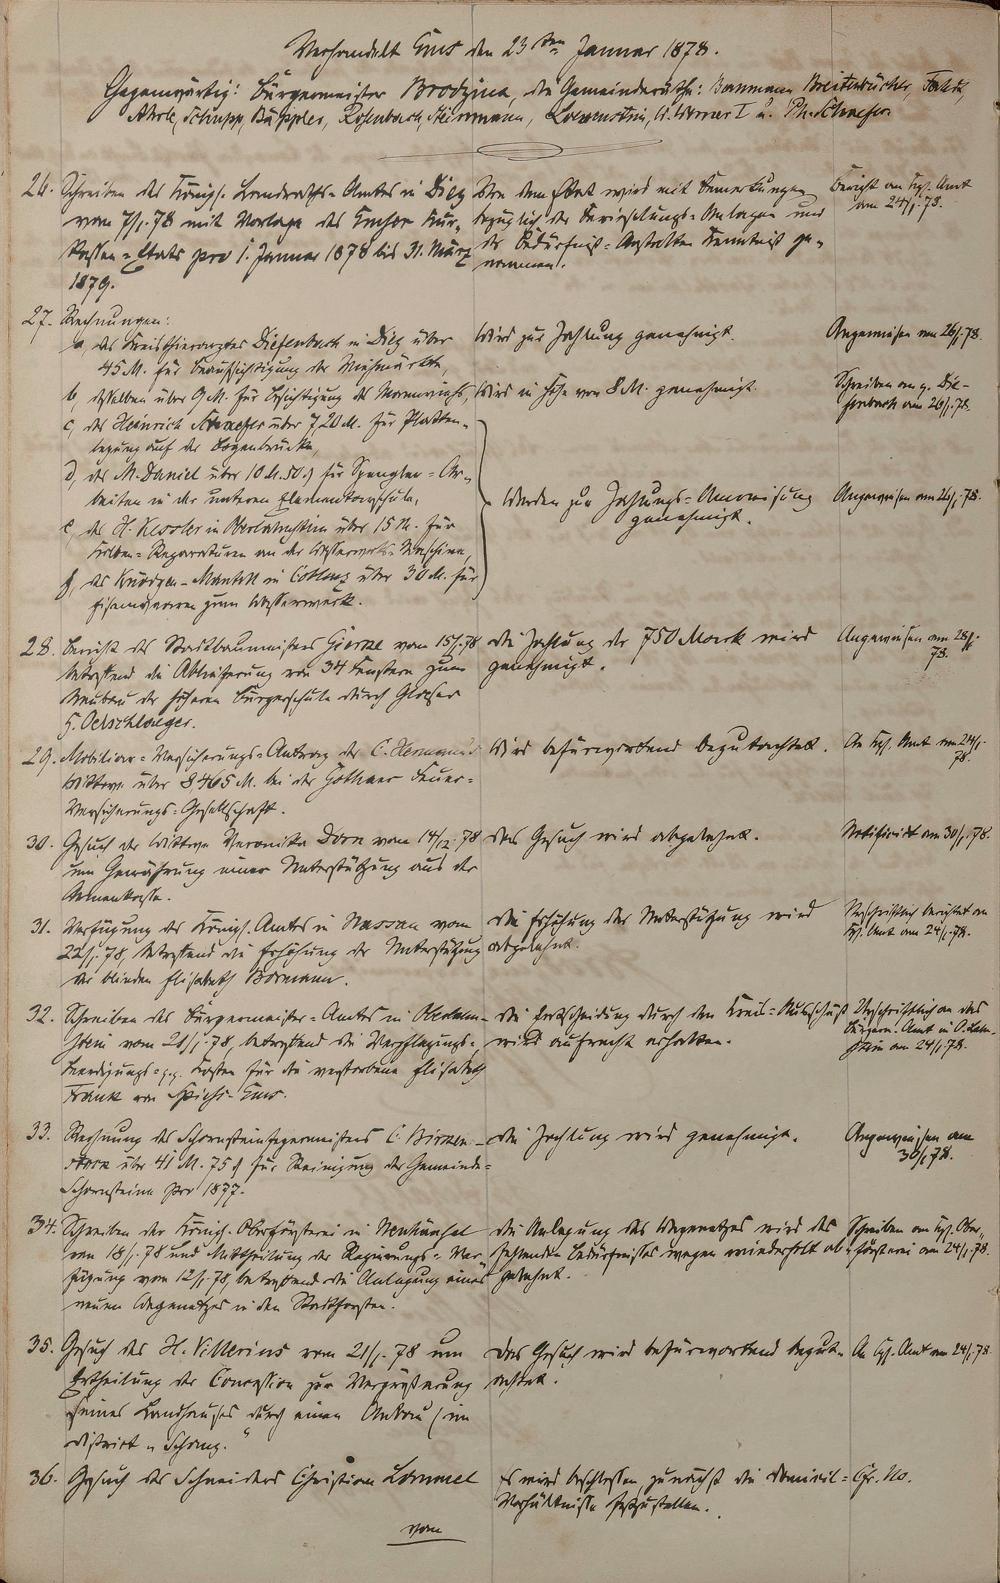 Verhandelt Ems den 23ten Januar 1878.
Gegenwärtig: Bürgermeister Brodzina, die Gemeinderäthe: Bonmann, Breitenbücher,
Schupp, Bäppler, Rosenbach, Loewenstein, W. Werner I u. Ph. Schaefer.
26. Schreiben des Königl. Landraths-Amtes in Diez
vom 7/1.78 mit Vorlage des Emser Kur-
kassen-Etats pro 1. Januar 1878 bis 31. März
1879.
Von dem Etat wird mit Bemerkungen
bezüglich der Berieselungs-Anlagen und
der Bedürfniß-Anstalten Kenntniß ge-
nommen.
Bericht an Kgl. Amt
am 24/1.78.
27. Rechnungen:
a, des Kreisthierarztes Diefenbach in Diez über
45 M. für Beaufsichtigung der Viehmärkte,
Wird zur Zahlung genehmigt.
Angewiesen am 26/1.78.
b, desselben über 9 M. für Besichtigung des
Wird in Höhe von 8 M. genehmigt.
Schreiben an p. Die-
fenbach am 26/1.78.
c, des Heinrich Schaefer über 720 M. für Platten-
legung auf der Bogenbrücke,
d, des M. Daniel über 10 M. 50 ₰ für Spengler-Ar-
beiten in der unteren Elementarschule,
e, des H. Kessler in Oberlahnstein über 15 M. für
Kolben-Reparaturen an der Wasserwerks-Maschine,
f, des in Coblenz über 30 M. für
Eisenwaaren zum Wasserwerk.
Werden zur Zahlungs-Anweisung
genehmigt.
Angewiesen am 26/1.78.
28. Bericht des Stadtbaumeisters vom 15/1.78
betreffend die Ablieferung von 34 Fenstern zum
Neubau der höheren Bürgerschule durch Glaser
H. Oelschlaeger.
die Zahlung der 750 Mark wird
genehmigt.
Angewiesen am 28/1.
78.
29. Mobiliar-Versicherungs-Antrag der C. Hermanns
Wittwe über 8465 M. bei der Gothaer Feuer-
Versicherungs-Gesellschaft.
Wird befürwortend begutachtet.
An Kgl. Amt am 24/1.
78.
30. Gesuch der Wittwe Veronika Dorn vom 14/12.78
um Gewährung einer Unterstützung aus der
Armenkasse.
das Gesuch wird abgelehnt.
Notificirt am 30/1.78.
31. Verfügung des Königl. Amtes in Nassau vom
22/1.78, betreffend die Erhöhung der Unterstützung
der blinden Elisabeth Bormann.
die Erhöhung der Unterstützung wird
abgelehnt.
Urschriftlich berichtet an
Kgl. Amt am 24/1.78.
32. Schreiben des Bürgermeister-Amtes in Oberlahn-
stein vom 21/1.78, betreffend die Verpflegungs-
Beerdigungs- p.p. Kosten für die verstorbene Elisabeth
Frank von Spiess-Ems.
die Entscheidung durch den Kreis-Ausschuß
wird aufrecht erhalten.
Urschriftlich an das
Bürgerm.-Amt in O.Lahn-
stein am 24/1.78.
33. Rechnung des Schornsteinfegermeisters C. Birken-
stock über 41 M. 75 ₰ für Reinigung der Gemeinde-
Schornsteine pro 1877.
die Zahlung wird genehmigt.
Angewiesen am
30/1.78.
34. Schreiben der Königl. Oberförsterei in Neuhäusel
vom 18/1.78 und Mittheilung der Regierungs-Ver-
fügung vom 12/1.78, betreffend die Anlegung eines
neuen Wegenetzes in den Stadtforsten.
die Anlegung des Wegenetzes wird des
fehlenden Bedürfnisses wegen wiederholt ab-
gelehnt.
Schreiben an Kgl. Ober-
försterei am 24/1.78.
35. Gesuch des H. Vitterius vom 21/1.78 um
Ertheilung der Concession zur Vergrößerung
seines Landhauses durch einen Anbau (im
District „Schanz."
das Gesuch wird befürwortend begut-
achtet.
An Kgl. Amt am 24/1.78
36. Gesuch des Schneiders Christian Lommel
Es wird beschlossen, zunächst die Domicil-
Verhältnisse festzustellen.
Cfr. No.
vom